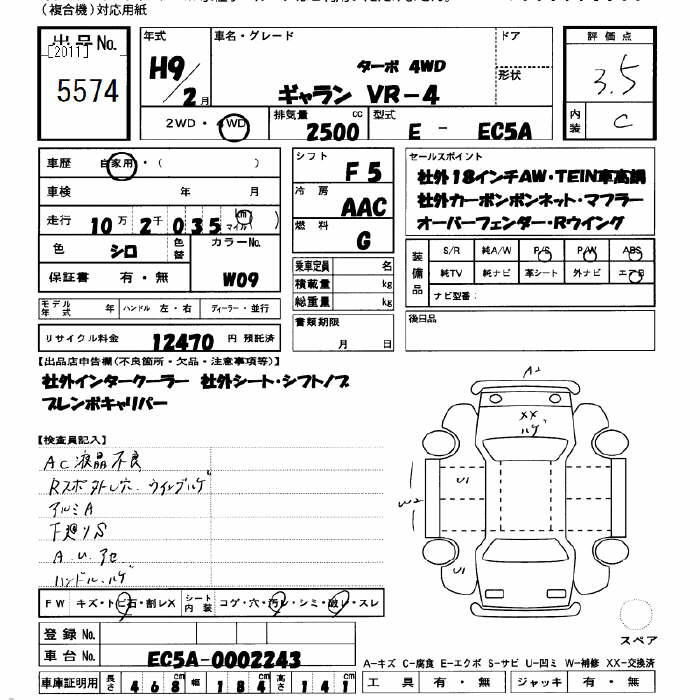 (複合機)対応用紙
出品No.
[2011]
5574
年式
H9/2月
車名・グレード
ターボ 4WD
ギャラン VR-4
ドア
形状
評価点
3.5
内装
C
2WD・4WD
排気量
2500cc
型式
E - EC5A
車歴 自家用・( )
車検 年 月
走行 10万2千035 km マイル
色 シロ 色替 カラーNo. W09
保証書 有・無
モデル年式 年 ハンドル 左・右 ディーラー・並行
リサイクル料金 12470 円 預託済
シフト F5
冷房 AAC
燃料 G
乗車定員 名
積載量 kg
総重量 kg
書類期限
月 日
セールスポイント
社外18インチAW・TEIN車高調
社外カーボンボンネット・マフラー
オーバーフェンダー・Rウイング
装備品
S/R 純A/W P/S P/W ABS
純TV 純ナビ 革シート 外ナビ エアB
ナビ型番:
後日品
【出品店申告欄(不良箇所・欠品・注意事項等)】
社外インタークーラー 社外シート・シフトノブ
ブレンボキャリパー
【検査員記入】
AC液晶不良
Rスポ外し穴 ウイングハゲ
アルミA
下廻りS
ハンドル・ハゲ
FW キズ・トビ石・割レX シート内装 コゲ・穴・汚レ・シミ・破レ・スレ
登録No.
車台No. EC5A-0002243
車庫証明用 長さ 468cm 幅 184cm 高さ 141cm
A2
XX
ハゲ
U1
W2
U1
スペア
A-キズ C-腐食 E-エクボ S-サビ U-凹ミ W-補修 XX-交換済
工具 有・無 ジャッキ 有・無